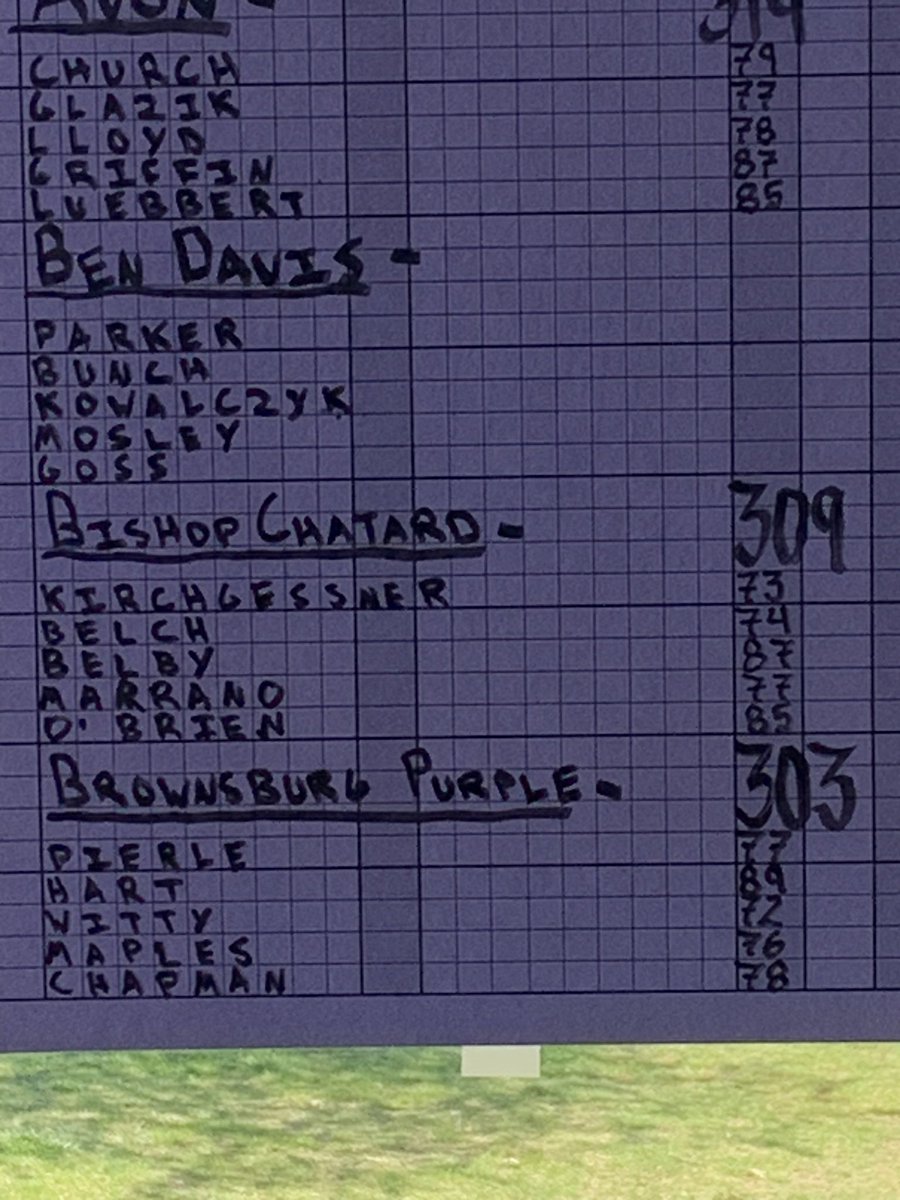 AVON - 319
CHURCH 79
GLAZIK 77
LLOYD 78
GRIFFIN 87
LUEBBERT 85
BEN DAVIS -
PARKER
BUNCH
KOWALCZYK
MOSLEY
GOSS
BISHOP CHATARD - 309
KIRCHGESSNER 73
BELCH 74
BELBY 87
MARRANO 77
O'BRIEN 85
BROWNSBURG PURPLE - 303
PIERLE 77
HART 89
WITTY 72
MAPLES 76
CHAPMAN 78